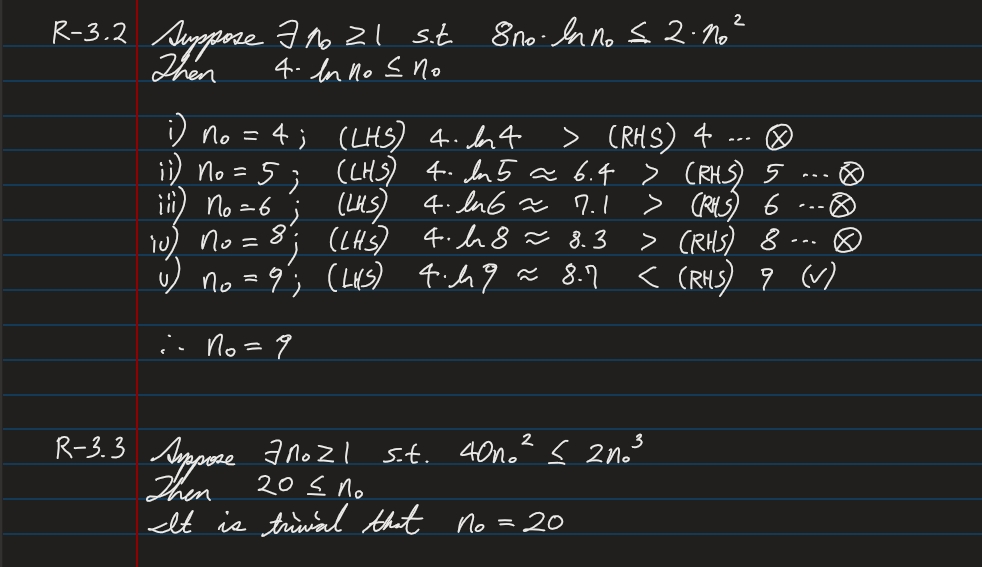 R-3.2 Suppose ∃ n₀ ≥ 1 s.t 8n₀· ln n₀ ≤ 2·n₀²
Then 4· ln n₀ ≤ n₀
i) n₀ = 4 ; (LHS) 4· ln4 > (RHS) 4 ... ⊗
ii) n₀ = 5 ; (LHS) 4· ln5 ≈ 6.4 > (RHS) 5 ... ⊗
iii) n₀ = 6 ; (LHS) 4· ln6 ≈ 7.1 > (RHS) 6 ... ⊗
iv) n₀ = 8 ; (LHS) 4· ln8 ≈ 8.3 > (RHS) 8 ... ⊗
v) n₀ = 9 ; (LHS) 4· ln9 ≈ 8.7 < (RHS) 9 (v)
∴ n₀ = 9
R-3.3 Suppose ∃ n₀ ≥ 1 s.t. 40n₀² ≤ 2n₀³
Then 20 ≤ n₀
It is trivial that n₀ = 20